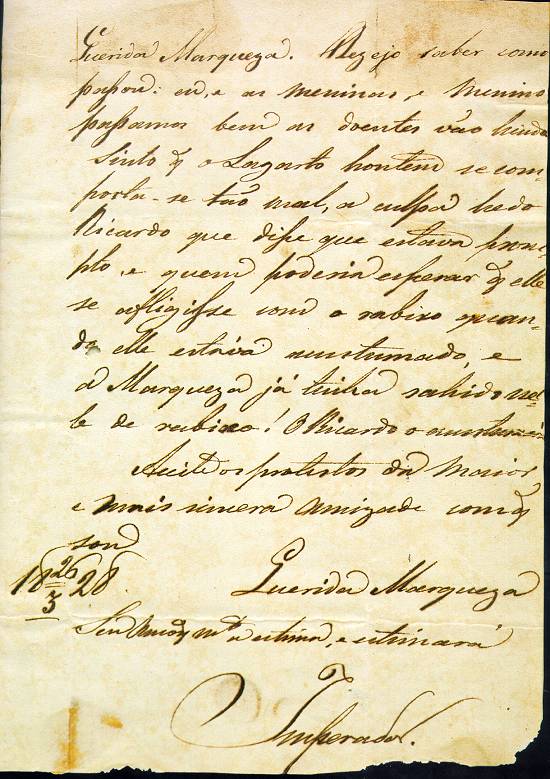 Querida Marqueza. Dezejo saber como
passou: eu, e as meninas, e Menino
passamos bem as doentes vão hindo
Sinto q̃ o Lagarto hontem se com-
porta-se tão mal, a culpa he do
Ricardo que disse que estava promp-
pto, e quem poderia esperar q̃ elle
se afligisse com o rabixo quan-
do elle estava acustumado, e
a Marqueza já tinha sahido nel-
le de rabixo! O Ricardo o
Aceite os protestos da maior
e mais sincera amizade com q̃
sou
Querida Marqueza
18 26/3 28
Seu Amo q̃ m.to a estima, e estimará
Imperador.